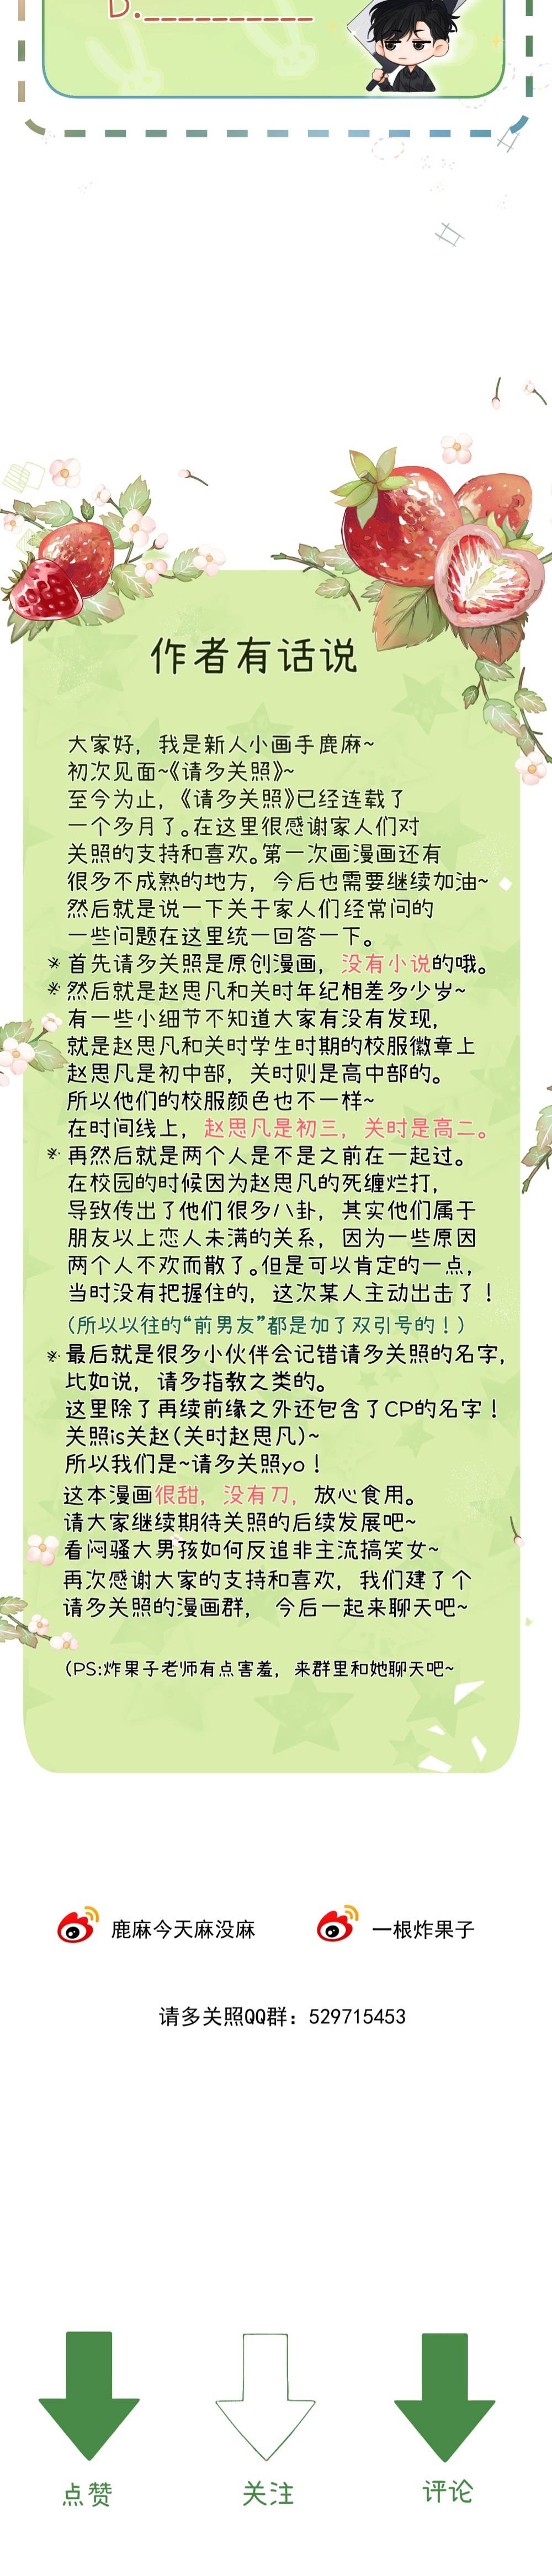 D.___________
作者有话说
大家好，我是新人小画手鹿麻~
初次见面~《请多关照》~
至今为止，《请多关照》已经连载了
一个多月了。在这里很感谢家人们对
关照的支持和喜欢。第一次画漫画还有
很多不成熟的地方，今后也需要继续加油~
然后就是说一下关于家人们经常问的
一些问题在这里统一回答一下。
※首先请多关照是原创漫画，没有小说的哦。
※然后就是赵思凡和关时年纪相差多少岁~
有一些小细节不知道大家有没有发现，
就是赵思凡和关时学生时期的校服徽章上
赵思凡是初中部，关时则是高中部的。
所以他们的校服颜色也不一样~
在时间线上，赵思凡是初三，关时是高二。
※再然后就是两个人是不是之前在一起过。
在校园的时候因为赵思凡的死缠烂打，
导致传出了他们很多八卦，其实他们属于
朋友以上恋人未满的关系，因为一些原因
两个人不欢而散了。但是可以肯定的一点，
当时没有把握住的，这次某人主动出击了！
（所以以往的“前男友”都是加了双引号的！）
※最后就是很多小伙伴会记错请多关照的名字，
比如说，请多指教之类的。
这里除了再续前缘之外还包含了CP的名字！
关照is关赵(关时赵思凡)~
所以我们是~请多关照yo！
这本漫画很甜，没有刀，放心食用。
请大家继续期待关照的后续发展吧~
看闷骚大男孩如何反追非主流搞笑女~
再次感谢大家的支持和喜欢，我们建了个
请多关照的漫画群，今后一起来聊天吧~
(PS:炸果子老师有点害羞，来群里和她聊天吧~
鹿麻今天麻没麻
一根炸果子
请多关照QQ群：529715453
点赞
关注
评论